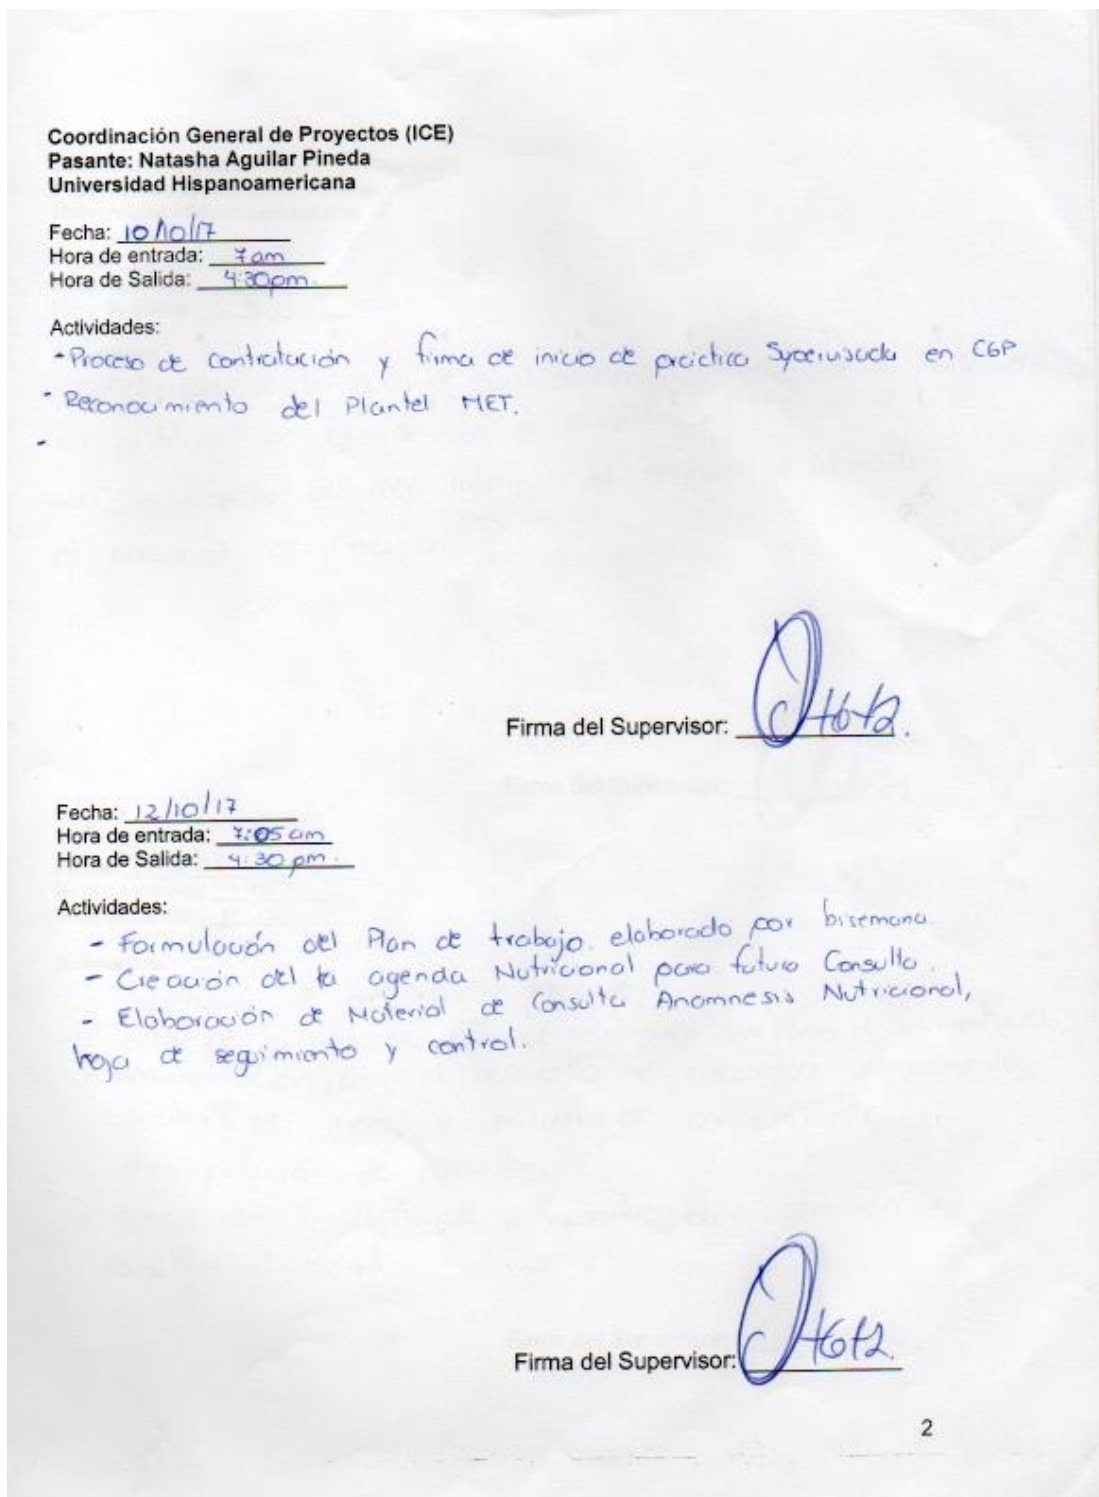 Coordinación General de Proyectos (ICE)
Pasante: Natasha Aguilar Pineda
Universidad Hispanoamericana
Fecha: 10/10/17
Hora de entrada: 7am
Hora de Salida: 4:30pm.
Actividades:
- Proceso de contratación y firma de inicio de práctica Supervisada en CGP
- Reconocimiento del Plantel MET.
-
Firma del Supervisor:
Fecha: 12/10/17
Hora de entrada: 7:05 am
Hora de Salida: 4:30 pm.
Actividades:
- Formulación del Plan de trabajo. elaborado por bisemana.
- Creación del la agenda Nutricional para futura Consulta.
- Elaboración de Material de Consulta Anamnesis Nutricional,
hoja de seguimiento y control.
Firma del Supervisor:
2